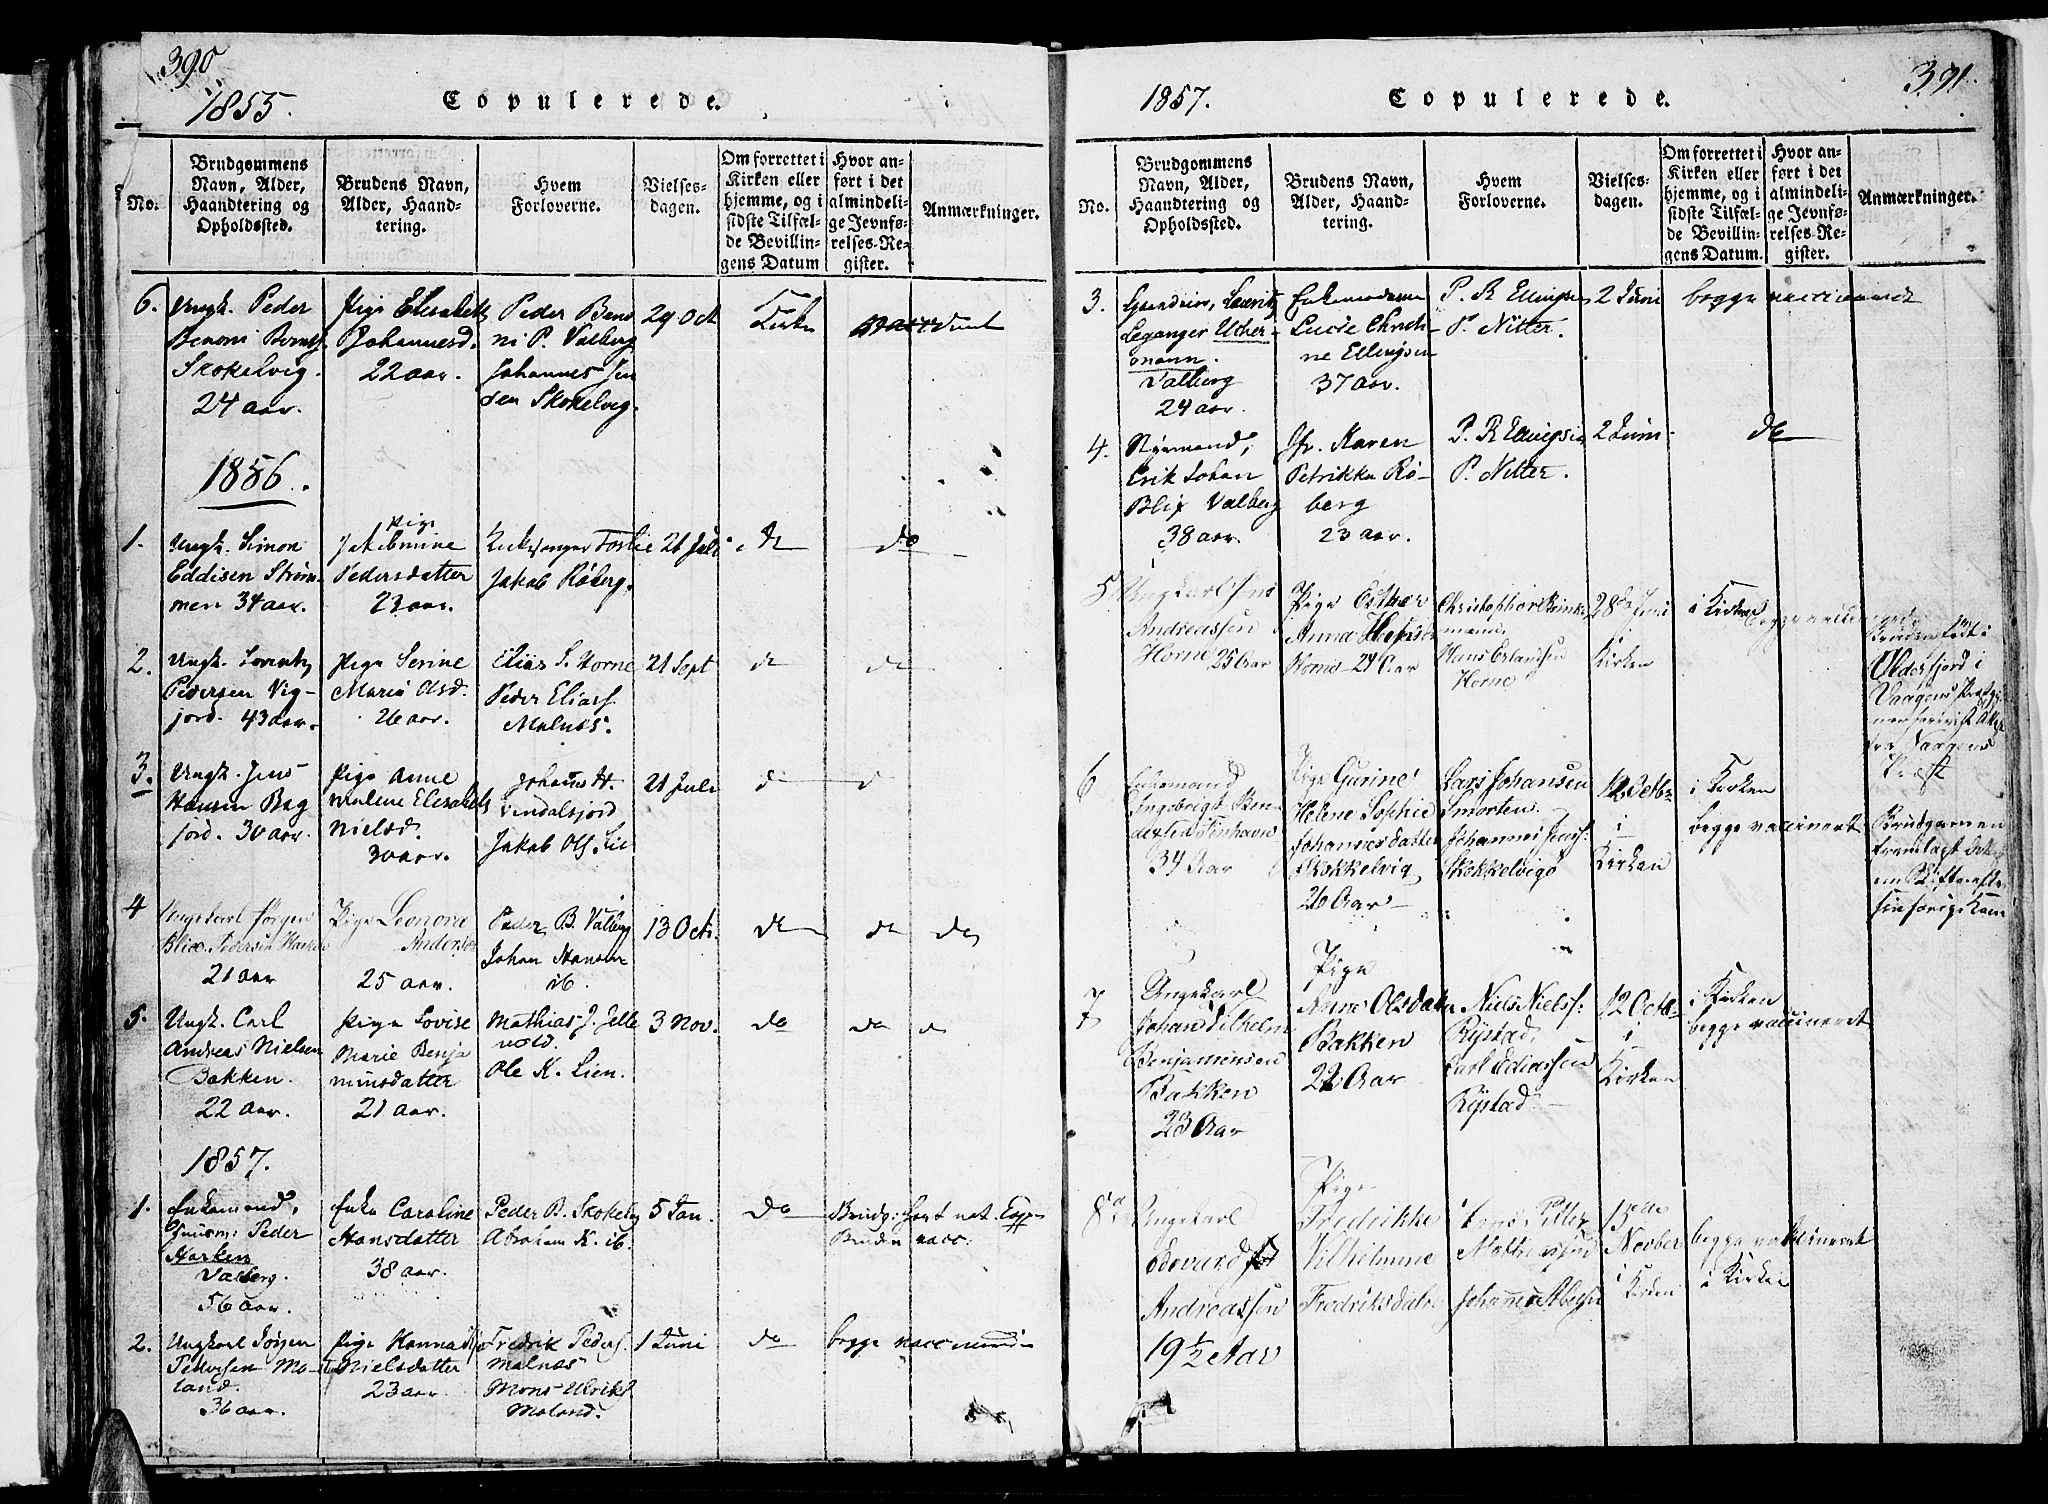 390
1855.
Copulerede.
No.
Brudgommens
Navn, Alder,
Haandtering og
Opholdssted.
Brudens Navn,
Alder, Haand-
tering.
Hvem
Forloverne.
Vielses-
dagen.
Om forrettet i
Kirken eller
hjemme, og i
sidste Tilfæl-
de Bevillin-
gens Datum
Hvor an-
ført i det
almindeli-
ge Jevnfø-
relses-Re-
gister.
Anmærkninger.
6.
Ungk. Peder
Benoni Berntz
Skokelvig.
24 aar.
Pige Elisabeth
Johannesd.
22 aar.
Peder Beno
ni P. Valberg
Johannes Jen
sen Skokelvig.
29 Oct
Kirke
1856.
1.
Ungk. Simon
Eddisen Strøm-
men 34 aar.
Pige
Jakobmine
Pedersdatter
23 aar.
Kirkesanger
Jakob Röberg.
21 Juli
do
do
2.
Ungk. Lorentz
Pedersen Vig-
jord. 43 aar.
Pige Serine
Maria Olsd.
26 aar.
Elias S. Horne
Peder Eliass
Malnæs.
21 Sept
do
do
3.
Ungk. Jens
Hansen Bøg
jord. 30 aar.
Pige Anne
Malene Elisabeth
Nielsd.
30 aar.
Johannes H.
Vendalsjord
Jakob Ols. Lie
21 Juli
d
d
4
Ungekarl Jørgen
Blix Pedersen
21 aar
Pige Leonora
Anders
25 aar.
Peder B. Valberg
Johan Hansen
ib.
13 Oct.
do
do
do
5.
Ungk. Carl
Andreas Nielsen
Bakken.
22 aar.
Pige Lovise
Marie Benja
minsdatter
21 aar.
Mathias J. Jelle
vold.
Ole K. Lien.
3 Nov.
do
do
d
1857.
1.
Enkemand,
Huusm: Peder
Marken
Valberg.
56 aar.
Enke Caroline
Hansdatter
38 aar.
Peder B. Skokelv
Abraham K. ib.
5 Jan.
do
Brudg: havt nat. Kopper
Bruden vacc:
2.
Ungkarl Jørgen
Pedersen Mo-
land.
36 aar.
Pige Hanna
Nielsdatter
23 aar
Fredrik Peders.
Malnæs
Mons Ulriks
Moland.
1 Juni
do
begge vaccinerede
391.
1857.
Copulerede.
No.
Brudgommens
Navn, Alder,
Haandtering og
Opholdssted.
Brudens Navn,
Alder, Haand-
tering.
Hvem
Forloverne.
Vielses-
dagen.
Om forrettet i
Kirken eller
hjemme, og i
sidste Tilfæl-
de Bevillin-
gens Datum.
Hvor an-
ført i det
almindeli-
ge Jevnfø-
relses-Re-
gister.
Anmærkninger.
3.
Lauritz
Leganger Ucher-
mann.
Valberg
24 aar.
Enkemadame
Lucie Chrch-
ne Ellingsen
37 aar.
P. R Ellingsen
P. Nitter.
2 Juni
begge vaccinerede
4.
Styrmand,
Erik Johan
Blix Valberg
38 aar.
Jfr. Karen
Petrikka Rö-
berg
23 aar.
P. R Ellingsen
P. Nitter.
2 Juni
do
5
Ungkarl Jens
Andreassen
Horne 25 Aar
Pige Esther
Anna
Horne 24 Aar
Christopher Brink
mann
Hans Erlandsen
Horne
28de Juni
i
Kirken
i Kirken begge vaccineret
Bruden født i
Oldesfjord i
Vaagens Prstgj
fra Vaagens
Præst
6
Enkemand
Ingebrigt Ben-
dixen Finhavn
34 Aar
Pige Gurine
Helene Sophie
Johannesdatter
Skokkelvig
26 Aar
Lars Johansen
Smorten.
Johannes Jens:
Skokkelvig
12 Octbr
i
Kirken
i Kirken
begge vaccineret
Brudgommen
fremlagt
7
Ungekarl
Johan Vilhelm
Benjamensen
Bakken
23 Aar
Pige
Anne Olsdatter
Bakken
22 Aar
Niels Niels:
Rystad,
Carl Ediassen
Rystad
12 Octb:
i
Kirken
i Kirken
begge vaccineret
8
Ungekarl
Edevard
Andreassen
19 1/2 Aar
Pige
Fredrikke
Vilhelmine
Fredriksdatter
Petter
Mathiassen
Johannes
15de
Novber
i Kirken
begge vaccineret
i Kirken